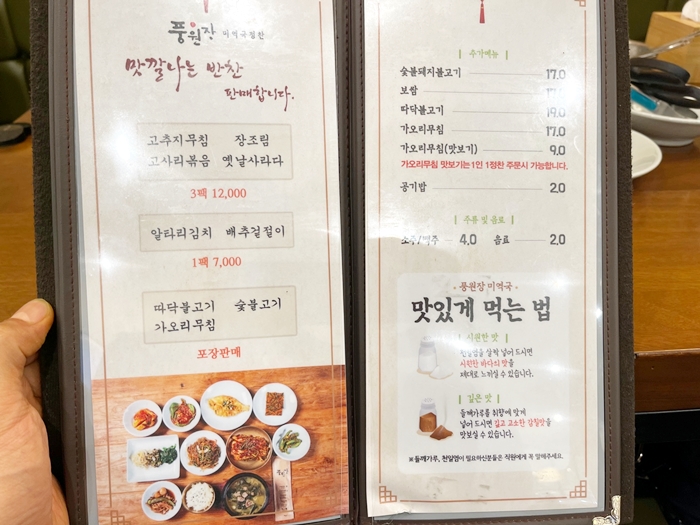 풍원장 미역국정찬
맛깔나는 반찬
판매합니다.
고추지무침 장조림
고사리볶음 옛날사라다
3팩 12,000
알타리김치 배추겉절이
1팩 7,000
따닥불고기 숯불고기
가오리무침
포장판매
추가메뉴
숯불돼지불고기 17.0
보쌈
따닥불고기 19.0
가오리무침 17.0
가오리무침(맛보기) 9.0
가오리무침 맛보기는 1인 1정찬 주문시 가능합니다.
공기밥 2.0
주류 및 음료
소주/맥주 4.0 음료 2.0
풍원장 미역국
맛있게 먹는 법
시원한 맛
천일염을 살짝 넣어 드시면
시원한 바다의 맛을
제대로 느끼실 수 있습니다.
깊은 맛
들깨가루를 취향에 맞게
넣어 드시면 깊고 고소한 감칠맛을
맛보실 수 있습니다.
※ 들깨가루, 천일염이 필요하신분들은 직원에게 꼭 말해주세요.